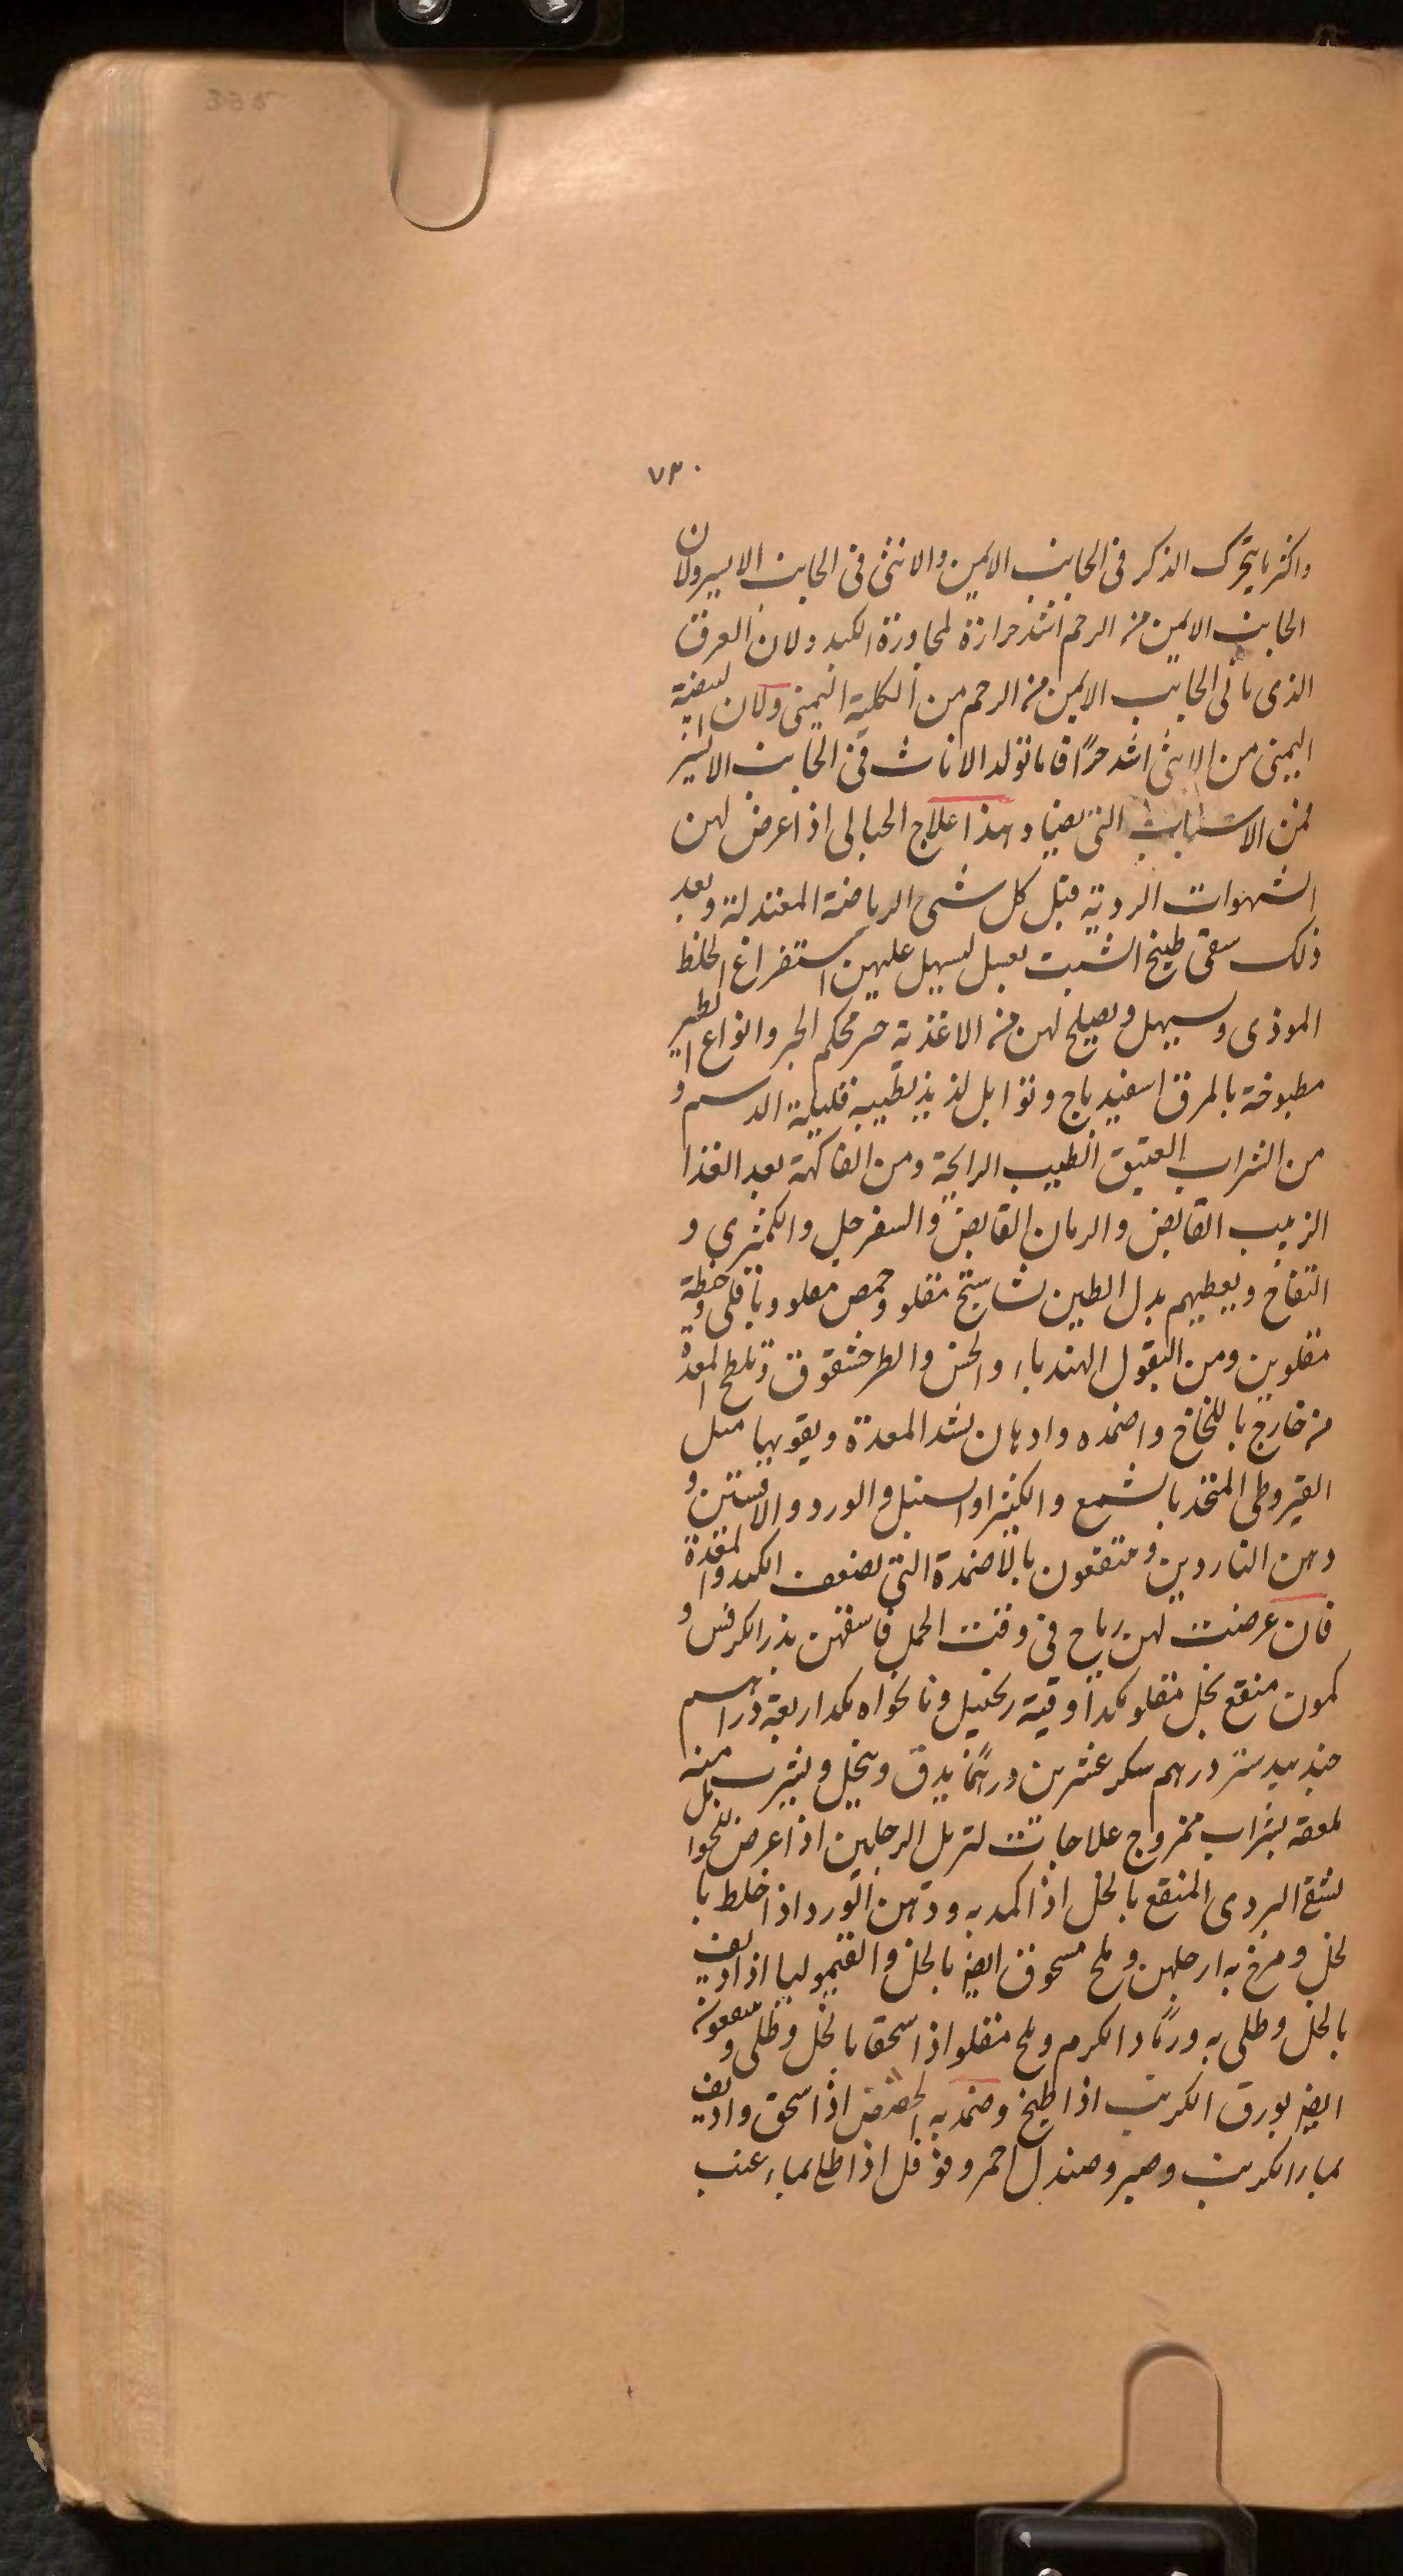 335
٧٣٠
واكثر ما يتحرك الذكر فى الجانب الايمن والانثى فى الجانب الايسر ولان
الجانب الايمن من الرحم اشد حرارة لمجاورة الكبد ولان العرق
الذى ياتى الجانب الايمن من الرحم من الكلية اليمنى ولان البيضة
اليمنى من الانثى اشد حرًا فاما تولد الاناث فى الجانب الايسر
فمن الاسباب التى يضاد هذا علاج الحبالى اذا عرض لهن
الشهوات الردية قبل كل شى الرياضة المعتدلة وبعد
ذلك سقى طبيخ الشبت بعسل ليسهل عليهن استفراغ الخلط
الموذى وسيهل ويصلح لهن من الاغذية خبز محكم الخبز وانواع الطير
مطبوخة بالمرق اسفيدباج وتوابل لذيذ بطيبه قليلة الدسم و
من الشراب العتيق الطيب الرايحة ومن الفاكهة بعد الغذا
الزبيب القابض والرمان القابض والسفرجل والكمثرى و
التفاح ويعطيهم بدل الطين نشاستج مقلو وحمص مقلو وباقلى وحنطة
مقلوين ومن البقول الهندباء والخس والطرخشقوق وتلطخ المعدة
من خارج باللخاخ واضمده وادهان لشد المعدة ويقويها مثل
القيروطى المتخذ بالشمع والكثيرا والسنبل والورد والافسنتين و
دهن الناردين ومنتفعون بالاضمدة التى لضعف الكبد والمعدة
فان عرضت لهن رياح فى وقت الحمل فاسقهن بذر الكرفس و
كمون منقع بخل مقلو مكدا وقية زنجبيل ونانخواه مكد اربعة دراهم
جندبيدستر درهم سكر عشرين درهمًا يدق وينخل ويشرب منه
لمعقه بشراب ممزوج علاجات لتربل الرجلين اذا عرض للحوامل
لشقع البردى المنقع بالخل اذا كمد به ودهن الورد اذا خلط با
لخل ومرخ به ارجلهن وملح مسحوق ايضا بالخل والقيموليا اذا اديف
بالخل وطلى به ورماد الكرم وملح مقلو اذا سحق بالخل وطلى ومنفعوته
ايضا بورق الكرنب اذا طبخ وضمد به الحضض اذا سحق واديف
بماء الكرنب وصبر وصندل احمر وفوفل اذا طلى بماء عنب